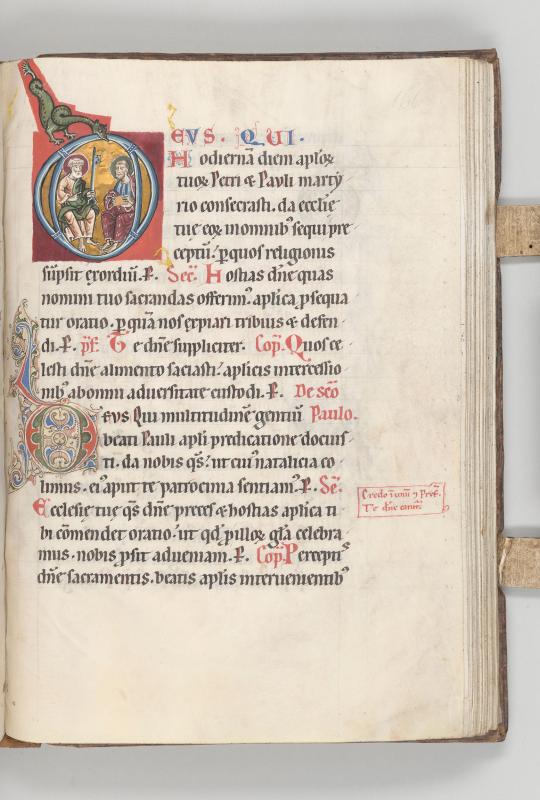 DEVS · QUI ·
Hodiernā diem aploꝝ
tuoꝝ Petri & Pauli marty
rio consecrasti. da ecclie
tue eoꝝ in omnib᾽ sequi pre
ceptū. ꝑ quos religionis
sūpsit exordiū. P. Sec̄. Hostias dn̄e quas
nomini tuo sacrandas offerim᾽. aplica ꝓsequa
tur oratio. ꝑ quā nos expiari tribuis & defen
di. P. p̄f. Te dn̄e suppliciter. Cop̄. Quos ce
lesti dn̄e alimento saciasti. aplicis intercessio
nib᾽ ab omni adversitate custodi. P. De sc̄o
DEVS Qui multitudinē gentiū Paulo.
beati Pauli apli predicatione docuis
ti. da nobis qs̄. ut cui᾽ natalicia co
limus. ei᾽ aput te patrocinia sentiam᾽. P. Sec̄.
Ecclesie tue qs̄ dn̄e preces & hostias aplica ti
bi cōmendet oratio. ut qd ꝓ illoꝝ gl̄a celebra
mus. nobis ꝓsit ad veniam. P. Cop̄. Perceptis
dn̄e sacramentis. beatis aplis intervenientib᾽
Te dn̄e